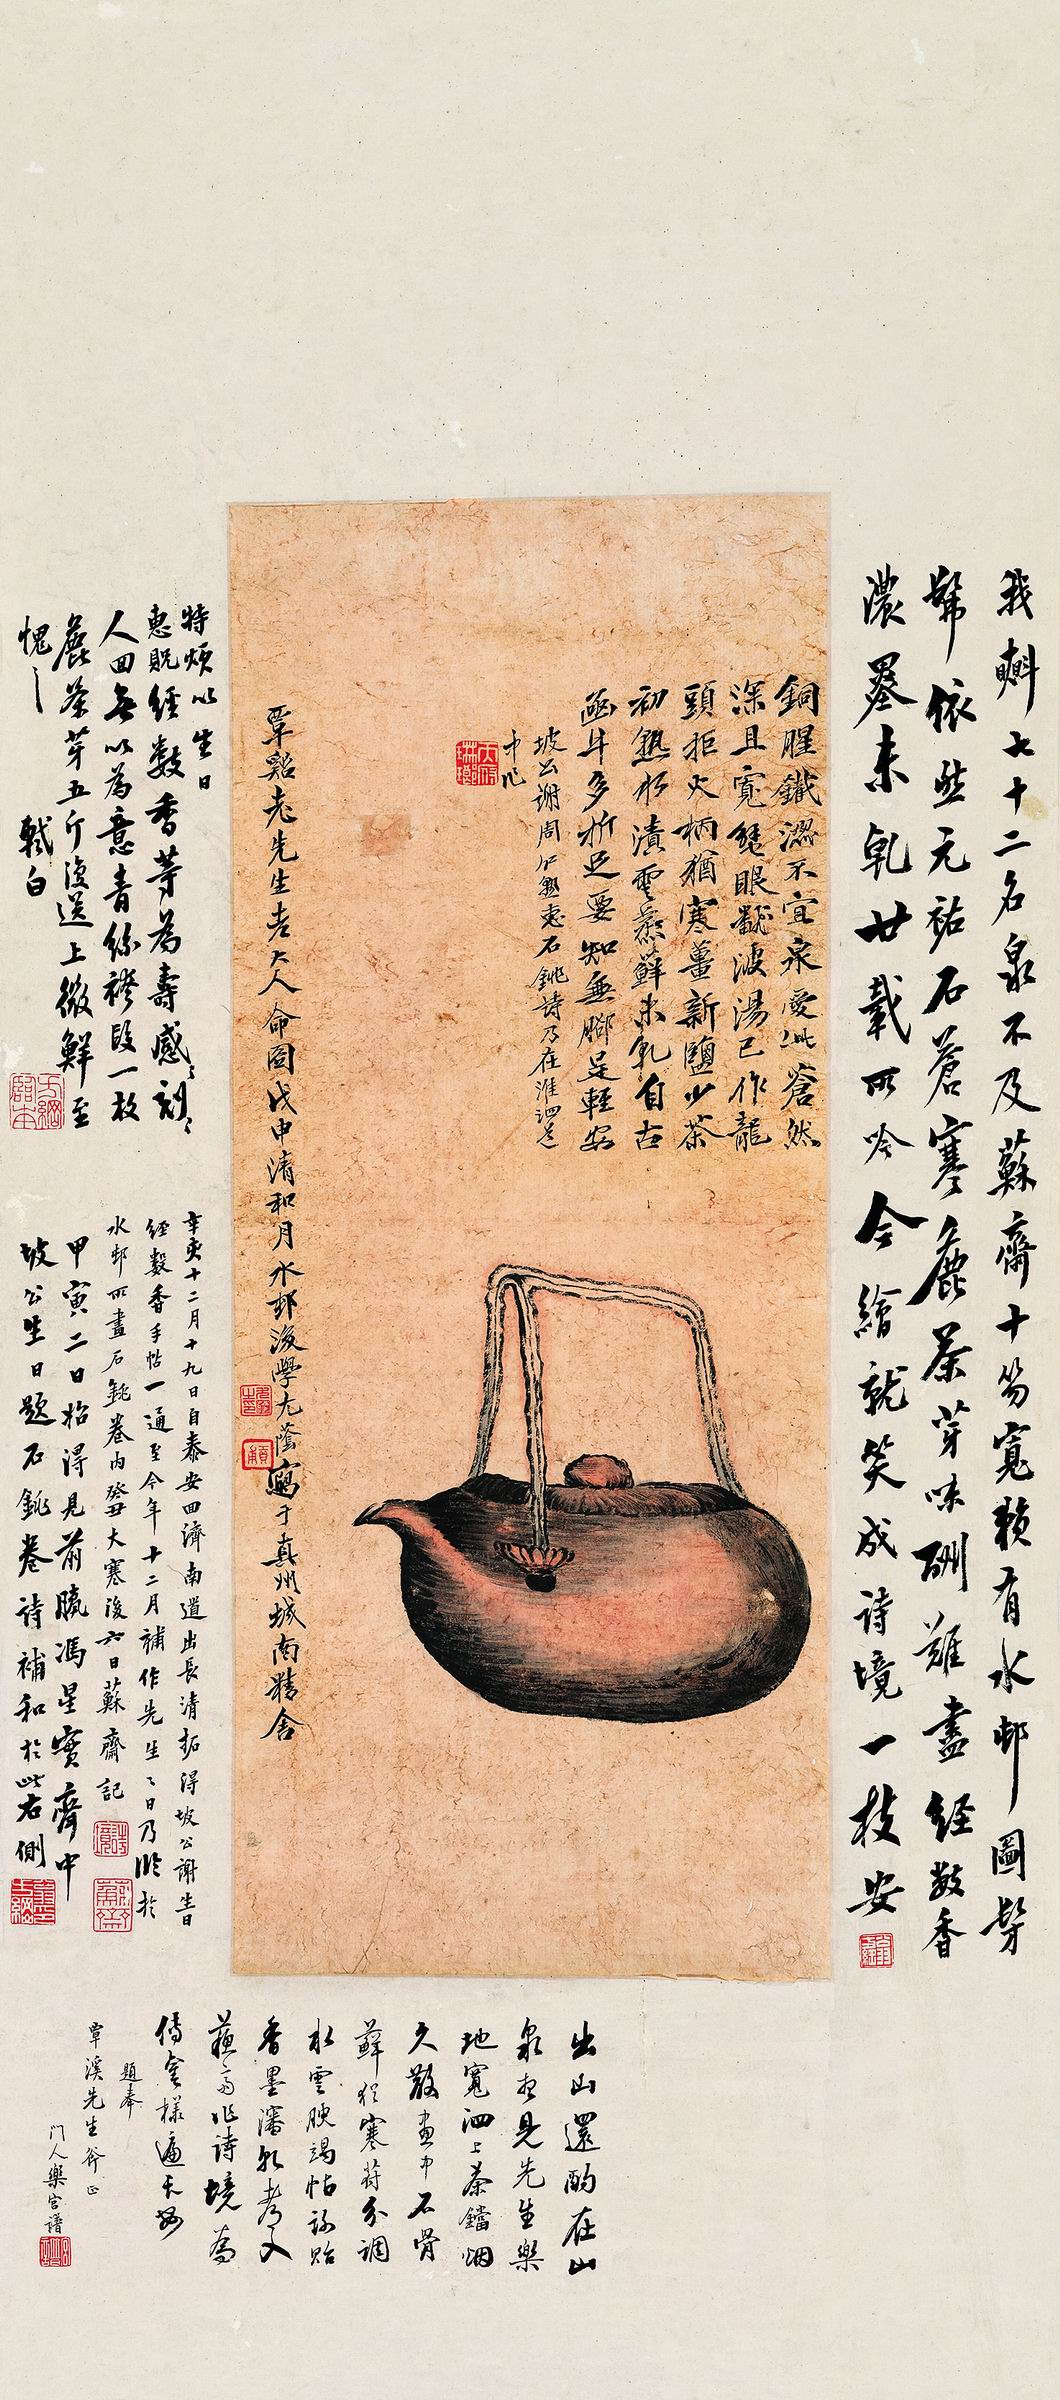 我㪺七十二名泉不及蘇齋十笏寬賴有水邨圖髣
髴依然元祐石蒼寒麤茶芽味酬難盡經數香
濃墨未乾廿載所吟今繪就笑成詩境一枝安
銅腥鐵澀不宜泉愛此蒼然
深且寬蟹眼翻波湯已作龍
頭拒火柄猶寒薑新鹽少茶
初熟水漬雲蒸蘚未乾自古
函牛多折足要知無腳是輕安
坡公謝周仁熟惠石銚詩乃在淮泗道
中作
覃谿老先生老大人命圖戊申清和月水邨後學尤蔭寫于真州城南精舍
特煩以生日
惠貺經數香等為壽感刻〻
人回無以為意青絲襟段一枚
麤茶芽五斤復送上微鮮至
愧〻 軾白
辛亥十二月十九日自泰安回濟南道出長清拓得坡公謝生日
經數香手帖一通至今年十二月補作先生〻日乃臨於
水邨所畫石銚卷內癸丑大寒後六日蘇齋記
甲寅二日招得見前賸馮星實齋中
坡公生日題石銚卷詩補和於此右側
出山還酌在山
泉想見先生樂
地寬泗上茶鐺烟
久散畫中石骨
蘚猶寒蒔分調
水雲腴渴帖論貽
香墨瀋乾考文
蘇齋作詩境齋
傳舍樣遍長安
題奉
覃溪先生斧正
門人樂宮譜